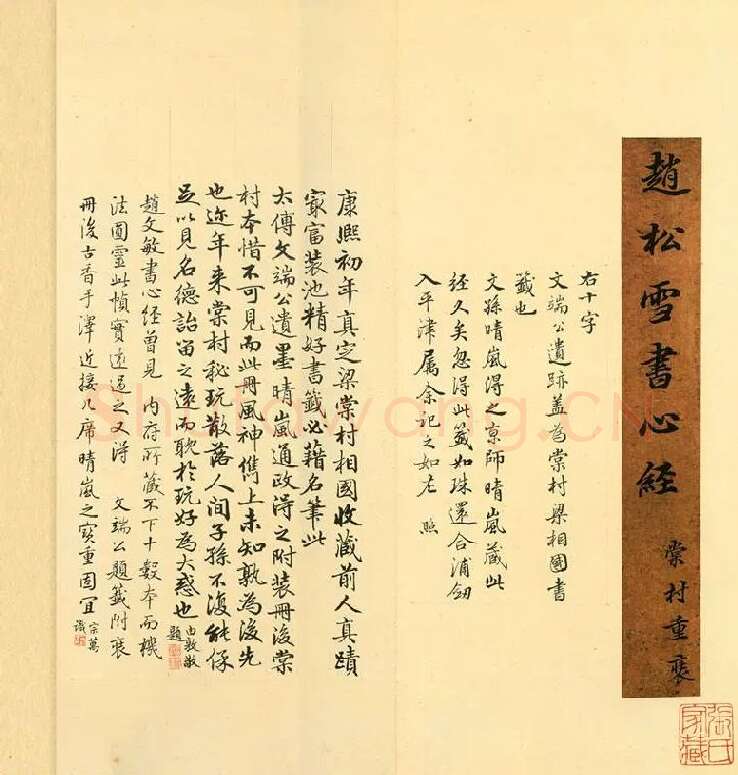 趙松雪書心經
棠村重褱
張氏家藏
右十字
文端公遺跡蓋為棠村梁相國書
籖也
文孫晴嵐得之京師晴嵐藏此
經久矣忽得此籖如珠還合浦劔
入平津属余記之如左 照
康熙初年真定梁棠村相國收藏前人真蹟
家富裝池精好書籖必藉名筆此
太傅文端公遺墨晴嵐通政得之附裝冊後棠
村本惜不可見而此冊風神儁上未知孰為後先
也近年来棠村秘玩散落人间子孫不復能保
足以見名德詒留之遠而耽於玩好為大惑也 由敦敬
題
趙文敏書心經曾見 内府所藏不下十數本而機
法圓靈此幀實遠過之又得 文端公題籖附褱
冊後古香手澤近接几席晴嵐之寳重固宜 宗萬
識
Shufawang.CN